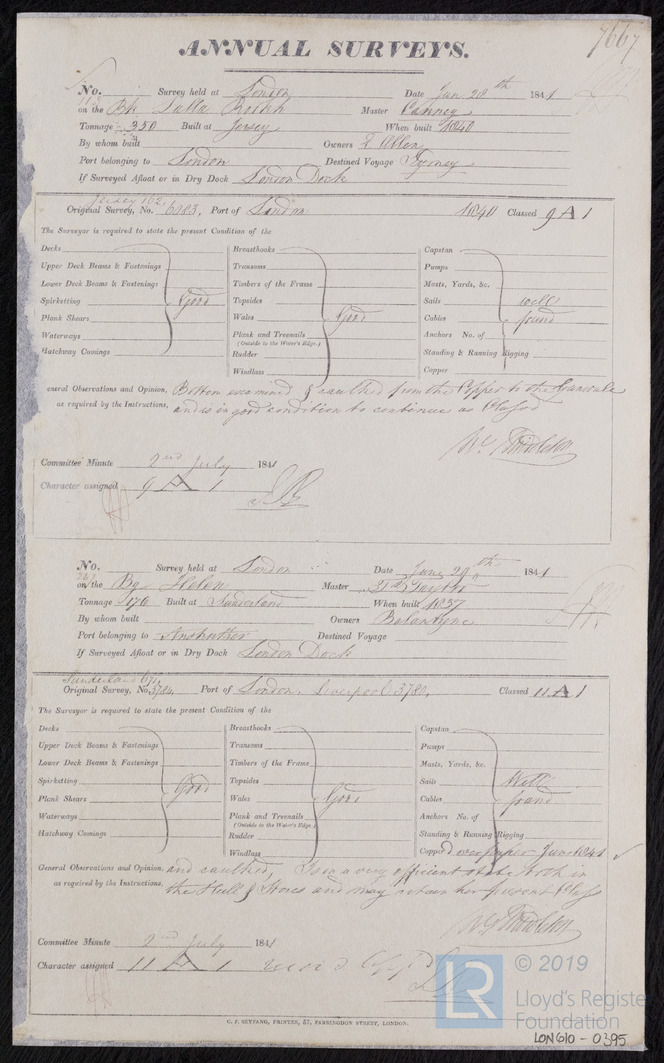 7667
ANNUAL SURVEYS.
No. Survey held at London Date Jan 20th 1841
on the Bk Lalla Rookh Master Canney
Tonnage 350 Built at Jersey When built 1840
By whom built Owners Allen
Port belonging to London Destined Voyage Sydney
If Surveyed Afloat or in Dry Dock London Dock
Jersey 102
Original Survey, No. 6083, Port of London 1840 Classed 9 A 1
The Surveyor is required to state the present Condition of the
Decks Breasthooks Capstan
Upper Deck Beams & Fastenings Transoms Pumps
Lower Deck Beams & Fastenings Timbers of the Frame Masts, Yards, &c.
Spirketting Good Topsides Sails well
Plank Shears Wales Good Cables found
Waterways Plank and Treenails Anchors No. of
(Outside to the Water's Edge.)
Hatchway Comings Rudder Standing & Running Rigging
Windlass Copper
General Observations and Opinion, Bottom examined & caulked from the Copper to the Gunwale
as required by the Instructions, and is in good condition to continue as Classed
Middleton
Committee Minute 2nd July 1841
Character assigned 9 A 1
No. Survey held at London Date June 29th 1841
on the Bg Helen Master Taylor
Tonnage 176 Built at Sunderland When built 1837
By whom built Owners Balantyne
Port belonging to Anstruther Destined Voyage
If Surveyed Afloat or in Dry Dock London Dock
Sunderland 671,
Original Survey, No. 3784, Port of London, Liverpool 3780, Classed 11 A 1
The Surveyor is required to state the present Condition of the
Decks Breasthooks Capstan
Upper Deck Beams & Fastenings Transoms Pumps
Lower Deck Beams & Fastenings Timbers of the Frame Masts, Yards, &c.
Spirketting Good Topsides Sails Well
Plank Shears Wales Good Cables found
Waterways Plank and Treenails Anchors No. of
(Outside to the Water's Edge.)
Hatchway Comings Rudder Standing & Running Rigging
Windlass Copper June 1841
General Observations and Opinion, and caulked, Is in a very efficient state both in
as required by the Instructions, the Hull & Stores and may retain her present Class
Middleton
Committee Minute 2nd July 1841
Character assigned 11 A 1
C. F. SEYFANG, PRINTER, 57, FARRINGDON STREET, LONDON.
LR © 2019
Lloyd's Register
Foundation
LON610-0395